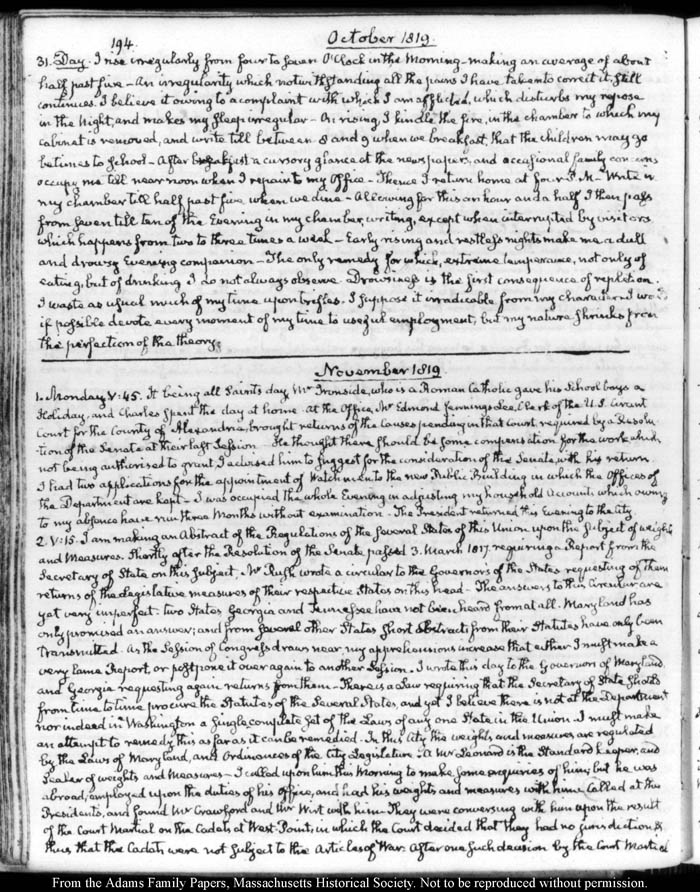 194.
October 1819.
31. Day. I rise irregularly from four to seven O'Clock in the Morning - making an average of about
half past five - An irregularity which notwithstanding all the pains I have taken to correct it, still
continues. I believe it owing to a complaint with which I am afflicted, which disturbs my repose
in the Night, and makes my sleep irregular - On rising, I kindle the fire, in the chamber to which my
cabinet is removed, and write till between 8 and 9 when we breakfast, that the children may go
betimes to School - After breakfast a cursory glance at the newspapers, and occasional family concerns
occupy me till near noon when I repair to my Office - Thence I return home at four P.M - Write in
my chamber till half past five when we dine - Allowing for this an hour and a half I then pass
from seven till ten of the Evening in my chamber, writing, except when interrupted by visitors
which happens from two to three times a week - Early rising and restless nights make me a dull
and drowsy Evening companion - The only remedy for which, extreme temperance, not only of
eating, but of drinking I do not always observe - Drowsiness is the first consequence of repletion.
I waste as usual much of my time upon trifles. I suppose it irradicable from my character. I would
if possible devote every moment of my time to useful employment, but my nature shrinks from
the perfection of the theory.
November 1819.
1. Monday V:45. It being all Saints day, Mr Ironside, who is a Roman Catholic gave his School boys a
Holiday, and Charles spent the day at home. At the Office, Mr Edmond Jennings Lee, Clerk of the U.S. Circuit
Court for the County of Alexandria brought returns of the Causes pending in that Court, required by a Resolu-
tion of the Senate at their last Session. He thought there should be some compensation for the work which
not being authorised to grant I advised him to suggest for the consideration of the Senate, with his return.
I had two applications for the appointment of Watchmen to the new Public Building in which the Offices of
the Department are kept - I was occupied the whole Evening in adjusting my household Accounts which owing
to my absence have run three Months without examination - The President returned this Evening to the City.
2. V:15. I am making an Abstract of the Regulations of the several States of this Union upon the subject of weights
and Measures. Shortly after the Resolution of the Senate passed 3. March 1817. requiring a Report from the
Secretary of State on this subject, Mr Rush wrote a circular to the Governors of the States requesting of them
returns of the Legislative measures of their respective States on this head - The answers to this Circular are
yet very imperfect. two States Georgia and Tennessee have not been heard from at all. Maryland has
only promised an answer; and from several other States short abstracts from their Statutes have only been
transmitted. As the Session of Congress draws near my apprehensions increase that either I must make a
very lame Report, or postpone it over again to another Session. I wrote this day to the Governors of Maryland
and Georgia requesting again returns from them - There is a Law requiring that the Secretary of State should
from time to time procure the Statutes of the several States, and yet I believe there is not at the Department
nor indeed in Washington a single complete Set of the Laws of any one State in the Union. I must make
an attempt to remedy this as far as it can be remedied. In this City the weights and measures are regulated
by the Laws of Maryland, and Ordinances of the City Legislature. A Mr Leonard is the Standard keeper, and
Sealer of weights and Measures - I called upon him this Morning to make some enquiries of him; but he was
abroad, employed upon the duties of his office, and had his weights and measures with him. Called at the
Presidents, and found Mr Crawford and Mr Wirt with him - They were conversing with him upon the result
of the Court Martial on the Cadets at West-Point, in which the Court decided that they had no jurisdiction, &
thus that the Cadets were not subject to the Articles of War. After one such decision by the Court Martial
From the Adams Family Papers, Massachusetts Historical Society. Not to be reproduced without permission.